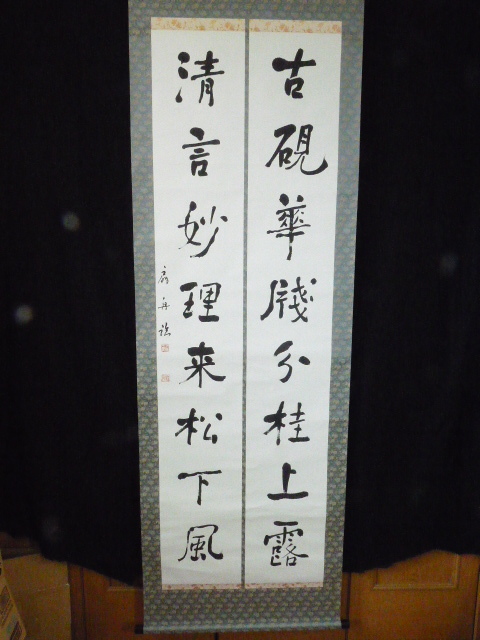 古硯華牋分桂上露
清言妙理来松下風